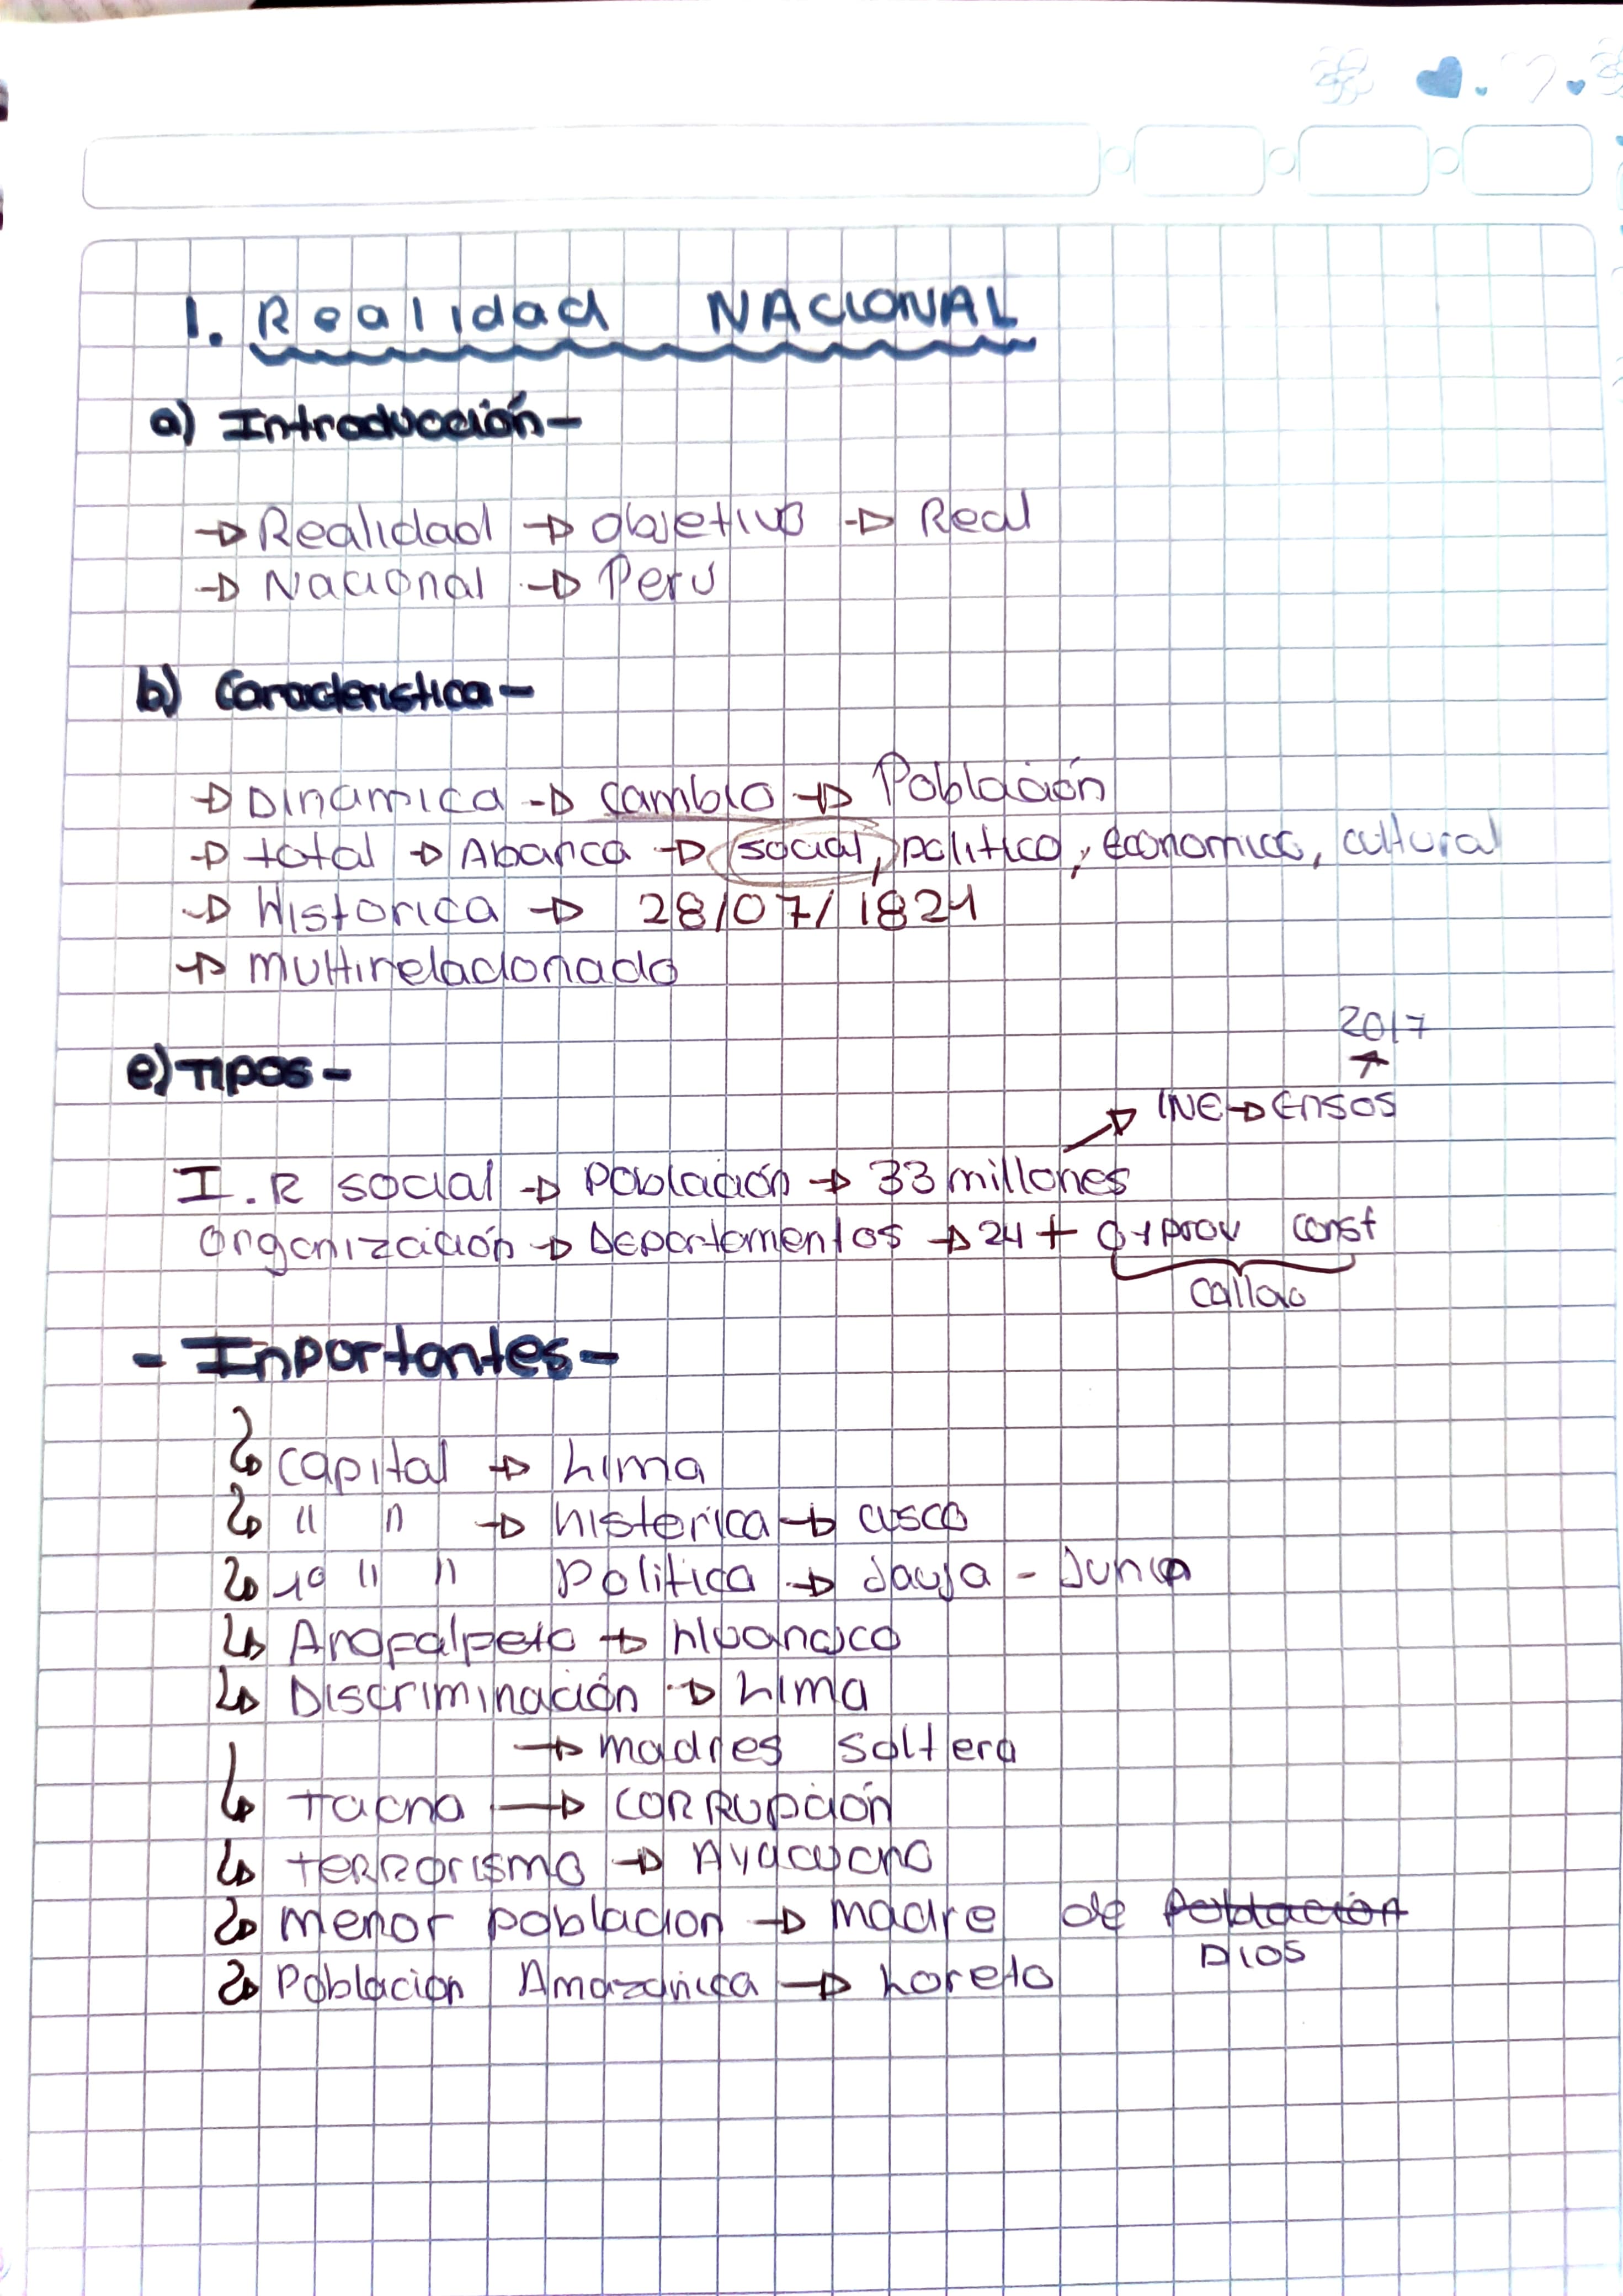 1. Realidad NACIONAL
a) Introducción-
→ Realidad → objetivo → Real
→ Nacional → Peru
b) Caracteristica-
→ Dinamica → cambio → Población
→ total → Abarca → social, politico, economico, cultural
→ Historica → 28/07/1821
→ multirelacionado
2017
e) TIPOS-
INE → Ensos
I.R social → Población → 33 millones
organización → Departamentos → 24 + prov const
callao
- Inportantes-
capital → Lima
" " → historica → cusco
1º " " Politica → Jauja - Junin
Anafalfeto → Huanuco
Discriminación → Lima
→ madres soltera
Tacna → CORRUPCIÓN
terrorismo → Ayacucho
menor poblacion → madre de población
DIOS
Poblacion Amazónica → Loreto